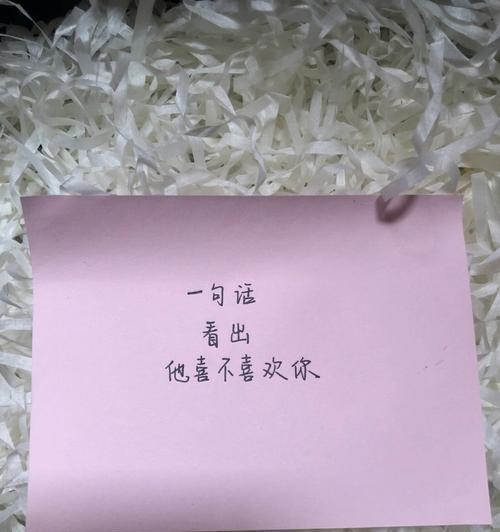 一句话
看出
他喜不喜欢你